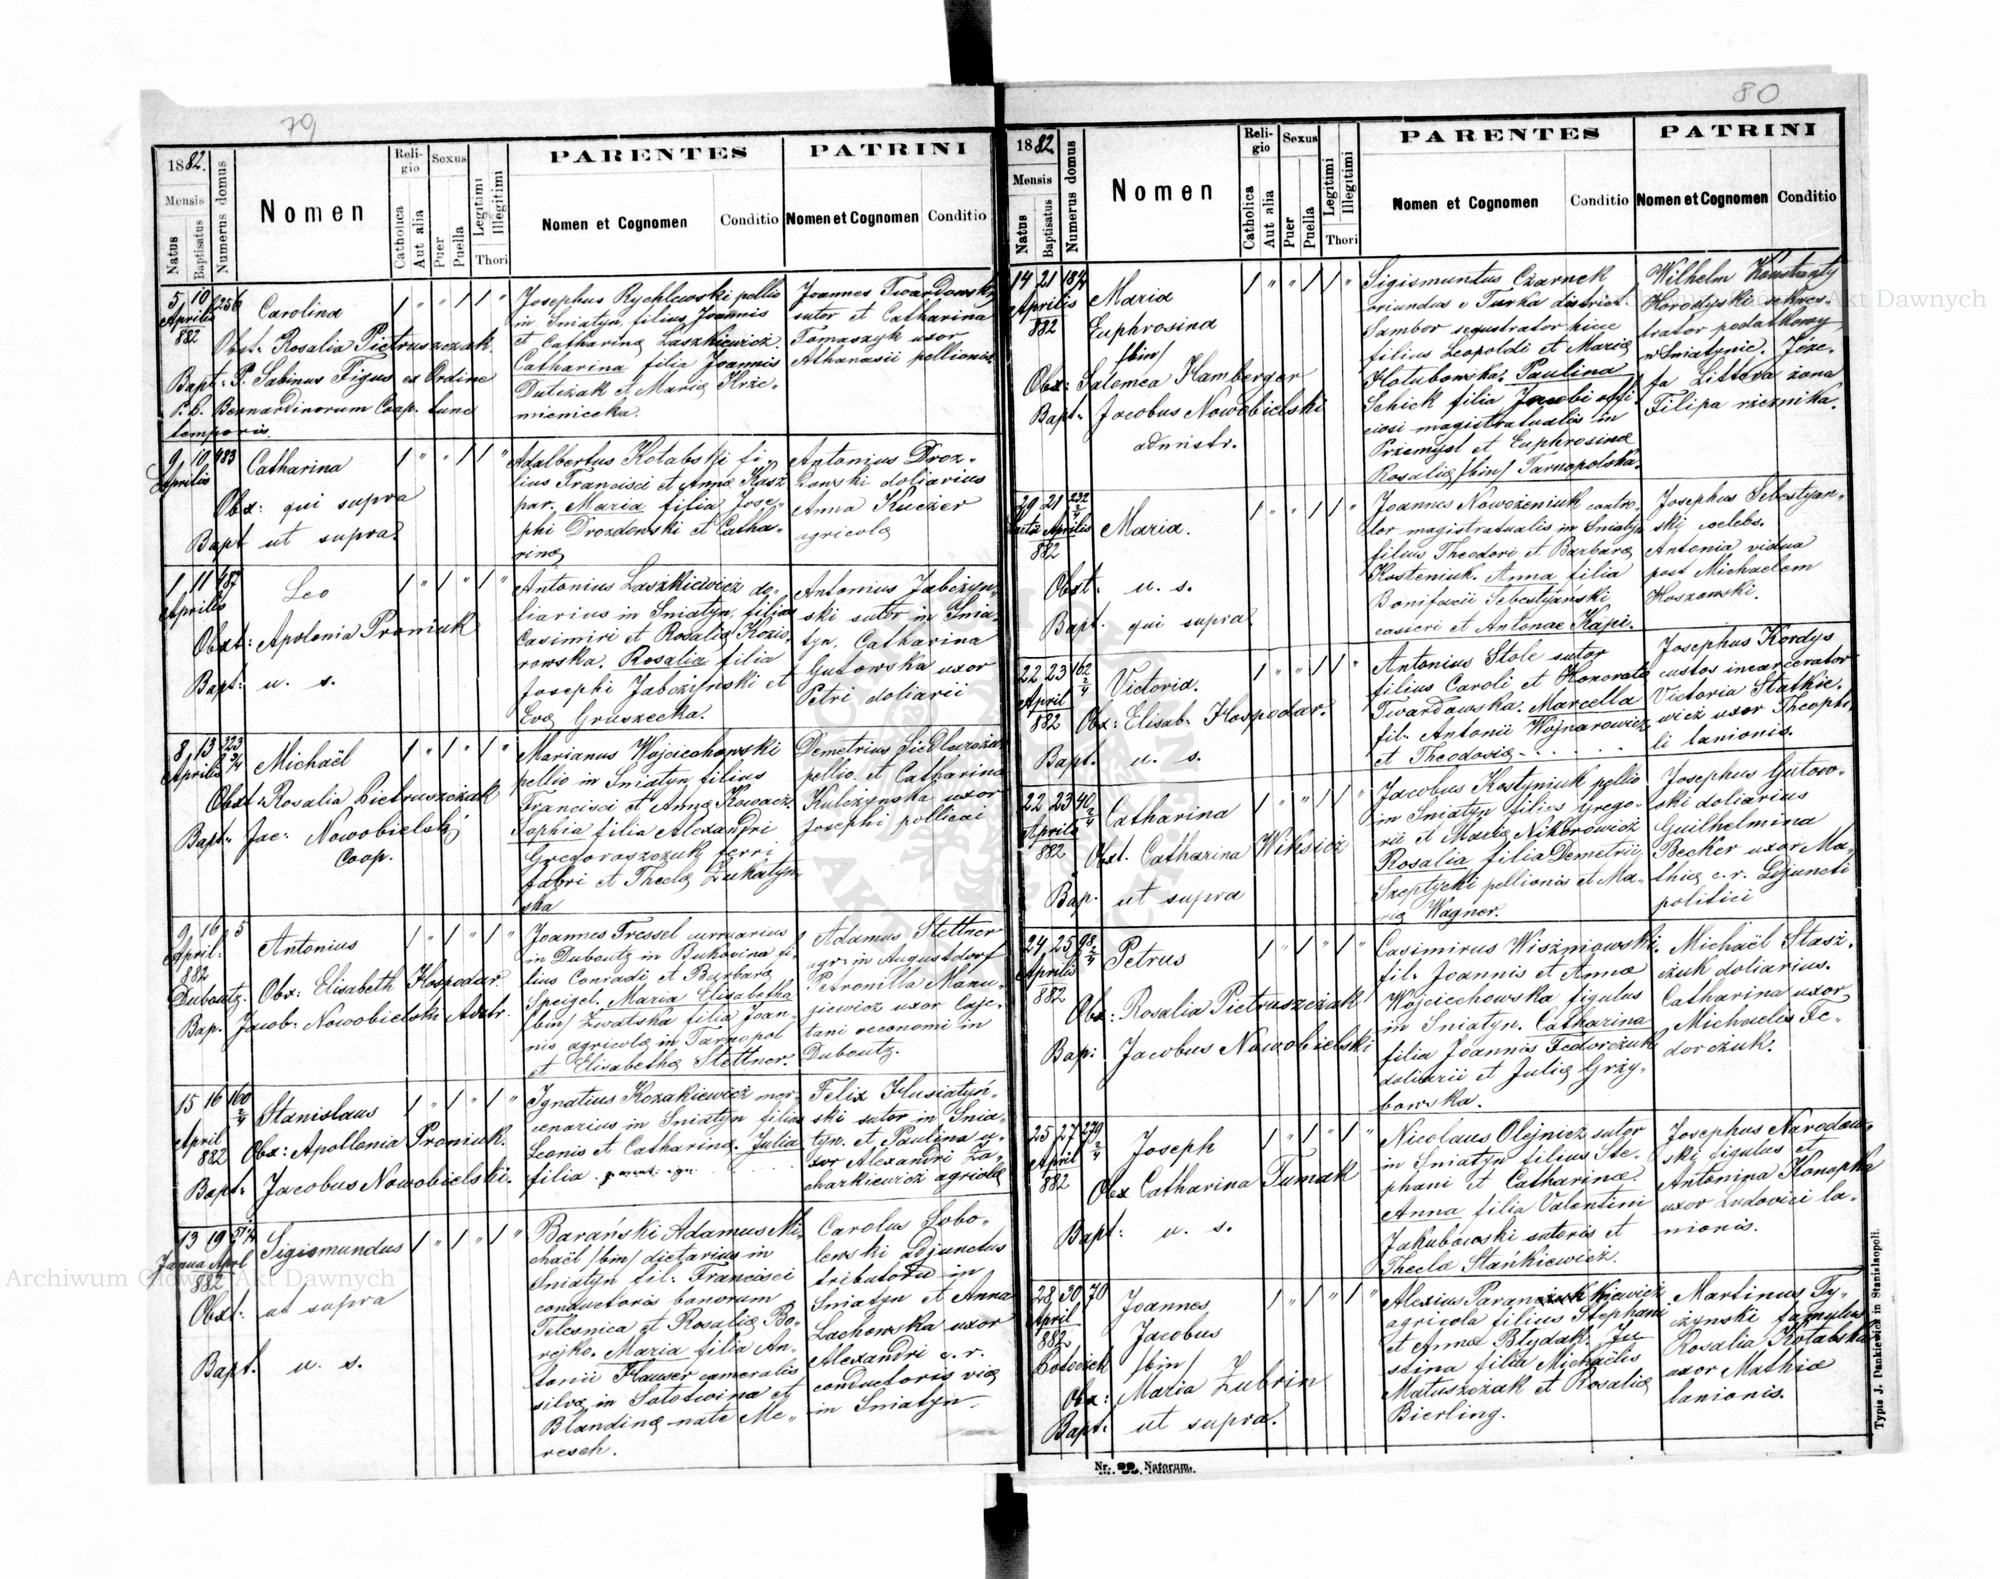 79
1882.
Mensis
Natus
Baptisatus
Numerus domus
Nomen
Religio
Catholica
Aut alia
Sexus
Puer
Puella
Legitimi
Illegitimi
Thori
PARENTES
Nomen et Cognomen
Conditio
PATRINI
Nomen et Cognomen
Conditio
5 10 256
Aprilis
882
Carolina
Obst: Rosalia Pietruszczak.
Bapt: P. Sabinus Figus ex Ordine
P. B. Bernardinorum Coop. tunc
temporis.
Josephus Rychlewski pellio
in Sniatyn, filius Joannis
et Catharina Laszkiewicz.
Catharina filia Joannis
Dutczak et Maria Krze-
mieniecka.
Joannes Twardowski
sutor et Catharina
Tomaszyk uxor
Athanasii pellionis
9 10 483
Aprilis
Catharina
Obx: qui supra
Bapt ut supra.
Adalbertus Kotabski fi-
lius Francisci et Anna Kasz
par. Maria filia Jose-
phi Drozdowski et Catha-
rina
Antonius Droz-
dowski doliarius
Anna Kuczer
agricola
1 11 487
Aprilis
Leo
Obxt: Apolonia Proniuk
Bapt: u. s.
Antonius Laszkiewicz do-
liarius in Sniatyn, filius
Casimiri et Rosalia Kozio-
rowska. Rosalia filia
Josephi Jabczyński et
Eva Gruszecka.
Antonius Jabczyn-
ski sutor in Snia-
tyn, Catharina
Gutowska uxor
Petri doliarii
8 13 223 3/4
Aprilis
Michaël
Obxt: Rosalia Pietruszczak
Bapt: Jac: Nowobielskj
Coop.
Marianus Wojciechowski
pellio in Sniatyn filius
Francisci et Anna Kowacz.
Sophia filia Alexandri
Gregoraszczuk ferri
fabri et Thecla Zukatyn
ska
Demetrius Siedlarczuk
pellio. et Catharina
Kulczynska uxor
Josephi pellicai
9 16 5
April.
882
Duboutz.
Antonius
Obx: Elisabeth Hospodar
Bap. Jacob: Nowobielski Adstr.
Joannes Tressel curruarius
in Duboutz in Bukovina fi-
lius Conradi et Barbara
Speigel. Maria Elisabetha
/bin/ Zwatska filia Joan-
nis agricola in Tarnopol
et Elisabetha Stettner.
Adamus Stettner
agr: in Augustdorf
Petronilla Manu-
jewicz uxor Caje-
tani oeconomi in
Duboutz.
15 16 160 2/4
April
882
Stanislaus
Obx: Apollonia Proniuk.
Bapt: Jacobus Nowobielski.
Ignatius Kozakiewicz mer-
cenarius in Sniatyn filius
Leonis et Catharina. Julia
filia
Felix Husiatyń-
ski sutor in Snia-
tyn. et Paulina u-
xor Alexandri Za-
charkiewicz agricola
13 19 57
Janua April
882
Sigismundus
Obxt: ut supra
Bapt. u. s.
Barański Adamus Mi-
chaël /bin/ dietarius in
Sniatyn fil: Francisci
conductoris bonorum
Telesnica et Rosalia Bo-
rejko. Maria filia An-
tonii Hauser cameralis
silva in Solotwina et
Blandina nate Me-
resch.
Carolus Sobo-
lewski adjunctus
tributoru in
Sniatyn et Anna
Lachowska uxor
Alexandri c. r.
conductoris via
in Sniatyn.
80
1882
Mensis
Natus
Baptisatus
Numerus domus
Nomen
Religio
Catholica
Aut alia
Sexus
Puer
Puella
Legitimi
Illegitimi
Thori
PARENTES
Nomen et Cognomen
Conditio
PATRINI
Nomen et Cognomen
Conditio
14 21 18/4
Aprilis
882
Maria
Euphrosina
/bin/
Obx: Salomea Hamberger
Bapt: Jacobus Nowobielski
administr.
Sigismuntus Czarnek
oriundus e Turka district
Sambor sequestrator hince
filius Leopoldi et Maria
Hotubowska. Paulina
Schick filia Jacobi offi-
ciosi magistratualis in
Przemysl et Euphrosina
Rosalia /bin/ Tarnopolska.
Wilhelm Konstanty
Horodyski sekwes-
trator podatkowy
w Sniatynie. Joze-
fa Littera żona
Filipa rzeznika.
29 21 232 2/4
Martii Aprilis
882
Maria.
Obst: u. s.
Bapt. qui supra
Joannes Nowożeniuk contro-
lor magistratualis in Sniatyn
filius Theodori et Barbara
Kosteniuk. Anna filia
Bonifacii Sebestyanski
casieri et Antonae Kapi.
Josephus Sebestyan-
skj coelebs.
Antonia vidua
post Michaelem
Koszowski.
22 23 162 2/4
April
882
Victoria.
Obx: Elisab. Hospodar.
Bapt. u. s.
Antonius Stole sutor
filius Caroli et Honorata
Twardawska. Marcella
fil. Antonii Wojnarowicz
et Theodosia
Josephus Kordys
custos incarcerator
Victoria Statkie-
wicz uxor Theophi-
li lanionis.
22 23 40 2/4
Aprilis
882
Catharina
Obxt. Catharina Wiksicz
Bap. ut supra
Jacobus Kostyniuk pellio
in Sniatyn filius Grego-
rii et Maria Nikorowicz
Rosalia filia Demetrii
Szeptycki pellionis et Ma-
ria Wagner.
Josephus Gutow-
ski doliarius
Guilhelmina
Becker uxor Ma-
thia c. r. Adjuncti
politici
24 25 98 2/4
Aprilis
882
Petrus
Obx: Rosalia Pietruszczak
Bap: Jacobus Nowobielski
Casimirus Wiszniowski.
fil. Joannis et Anna
Wojciechowska figulus
in Sniatyn. Catharina
filia Joannis Fedorczuk
doliarii et Julia Grzy-
bowska.
Michaël Stasz-
czuk doliarius.
Catharina uxor
Michaelis Fe-
dorczuk.
25 27 279 2/4
April
882
Joseph
Obx Catharina Tumak
Bapt: u. s.
Nicolaus Olejnicz sutor
in Sniatyn filius Ste-
phani et Catharina.
Anna filia Valentini
Jakubowski sutoris et
Thecla Stańkiewicz.
Josephus Narodow-
ski figulus et
Antonina Konopka
uxor Ludovici la-
nionis.
28 30 70
April
882
Joannes
Jacobus
/bin/
Obx: Maria Zubrin
Bapt: ut supra.
Alexius Paran kiewicz
agricola filius Stephani
et Anna Blydak. Ju
stina filia Michaëlis
Matuszczak et Rosalia
Bierling.
Martinus Ty-
czynski famulus
Rosalia Kotabska
uxor Mathia
lanionis.
Nr. 22. Natorum.
Typis J. Dankiewicz in Stanislaopoli.
Archiwum Główne Akt Dawnych
Akt Dawnych